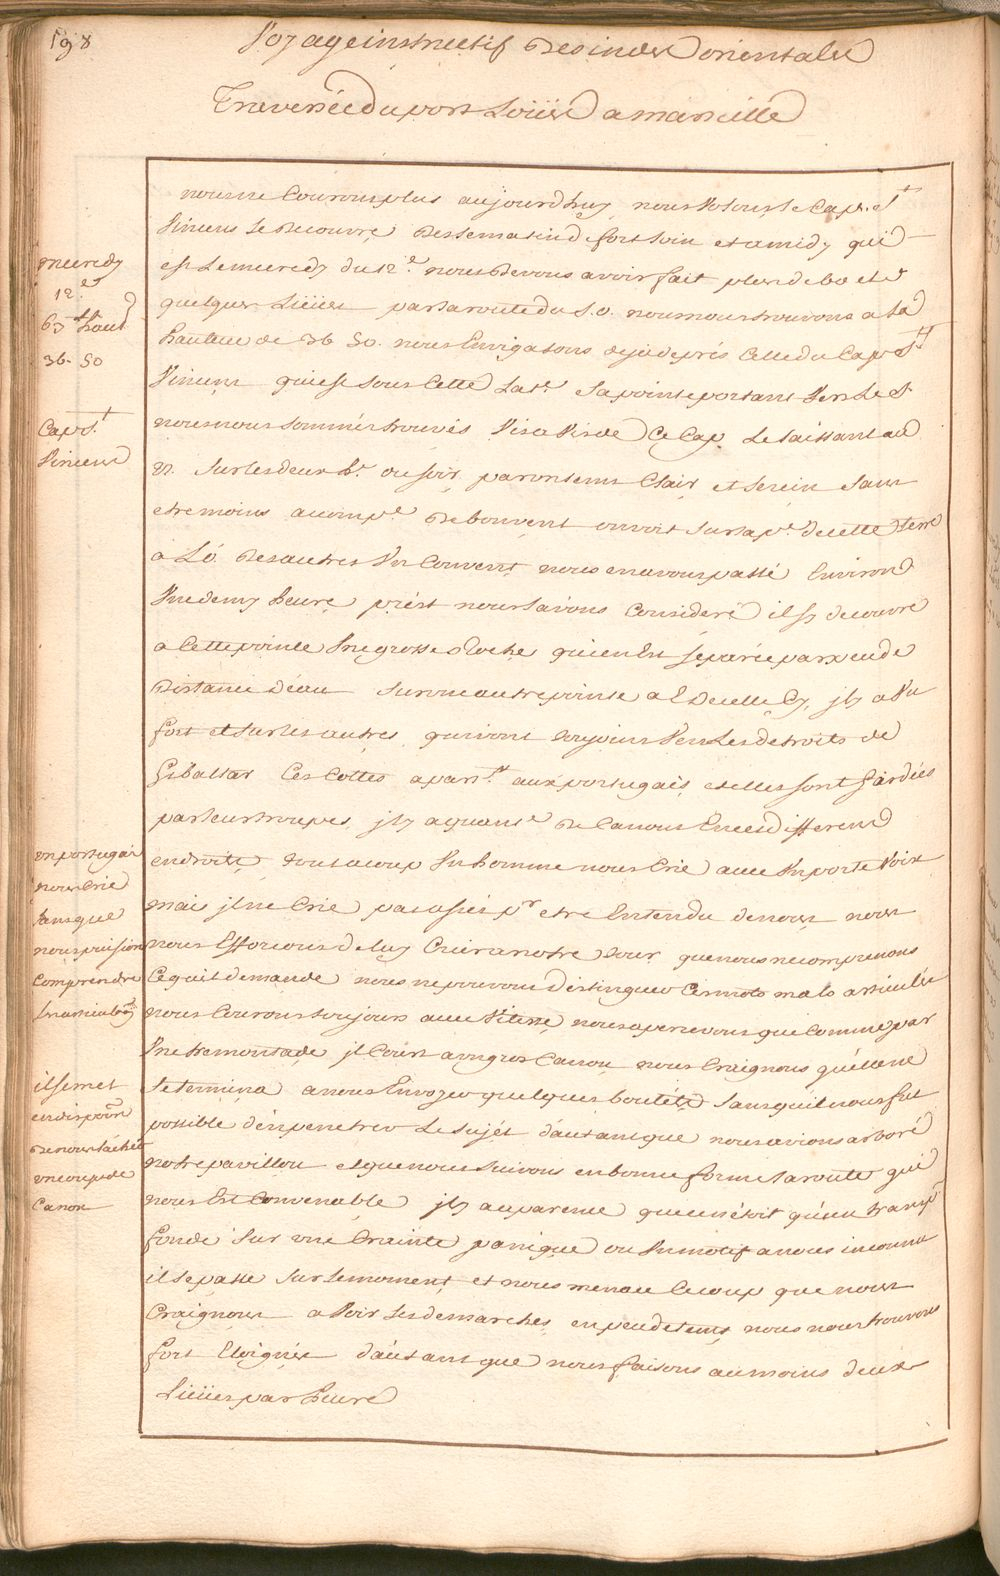 198
Voyage instructif Des indes orientales
Traversée du port Loüis a marseille
nous ne Courons plus aujourdhuy nous Votons le Cap. St
Vincens Se Decouvre Des le matin d fort loin et a midy qui
est Le mecredy du 12.e nous Devons avoir fait plus de 60 et
quelques Lieües par la route du S.O. nous nous trouvons a la
hauteur de 36 50. nous Envigations deja de prés Celle du Cap St
Vincens qui est sous Cette Lat.e Sa pointe portant Vers Le S.
nous nous sommes trouvés Vis a Vis de Ce Cap Le laissant au
n. sur les deux h.r du soir par un tems Clair et serein sans
etre moins acomp.é De bon vent on voit sur la p.te de cette terre
a L'O. Des autres Un Couvent nous en avons passé Environ
Une demy heure prést nous l'avons Consideré il sy decouvre
a Cette pointe Une grosse Roche qui en Est separée par peu de
Distance d'eau sur une autre pointe a E De celle Cy, jl y a Un
fort et sur les autres qui vont toujours Vers Les detroits de
Gibaltar Ces Costes apar.nt aux portugais et elles sont gardées
par leur troupes jl y a quant.é De Canons En ces differens
endroits tout acoup Un homme nous Crie avec Un porte Voix
mais jl ne Crie pas assés pr etre Entendu de nous nous
nous Efforcons de luy Crier a notre tour que nous ne comprenons
Ce quil demande nous ne pouvons distinguer Ces mots mals articulés
nous Courons toujours avec Vitesse nous apercevons que Comme par
Une tremontade jl Court a un gros Canon nous Craignons quelle ne
Se termina a nous Envoyer quelques boulets sans quil nous fut
possible d'en penetrer Le sujét dautant que nous avions arboré
notre pavillon et que nous suivons en bonne forme la route qui
nous Est Convenable jl y a aparence que ce n'étoit qu'un transp.t
fondé sur une Crainte panique ou Un motif a nous inconnu
il se passe sur le moment et nous menace Ce coup que nous
Craignons a Voir Les demarches en peu de tems nous nous trouvons
fort Eloignés dautant que nous faisons au moins deux
Lieües par heure
mecredy
12.e
63 haut.r
36. 50
Cap St
Vincens
un portugais
nous Crie
sans que
nous puissions
Comprendre
il se met
en dispoõn
De nous lâcher
un coup de
Canon